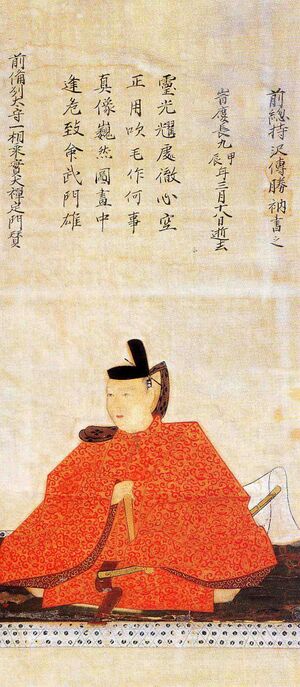 前備刕太守一相乘實大禪定門賛
逢危致命武門雄
真像巍然圖畫中
正用吹毛作何事
靈光耀處徹心空
旹慶長九甲辰年三月十八日逝去
前總持沢傳勝衲書之